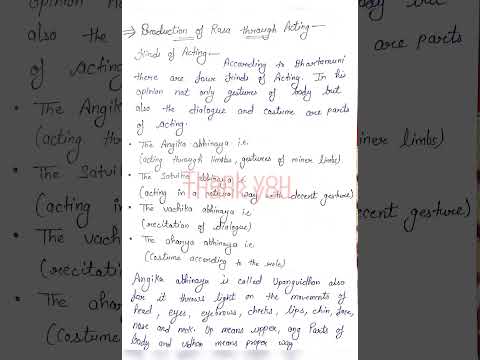 ⇒ Production of Rasa through Acting —
Kinds of Acting —
According to Bhartamuni
there are four kinds of Acting. In his
opinion not only gestures of body but
also the dialogue and costume are parts
of acting.
• The Angika abhinaya i.e.
(acting through limbs, gestures of miner limbs).
• The Satvika abhinaya
(acting in a natural way with decent gesture)
• The vachika abhinaya i.e
(recitation of dialogue)
• The aharya abhinaya i.e.
(costume according to the role)
Angika abhinaya is called Upangvidhan also
for it throws light on the movements of
head, eyes, eyebrows, cheeks, lips, chin, face,
nose and neck. Up means upper, ang Parts of
body and vdhan means proper way
Thank you
also the
of acting
• The Angi
(acting
• The Satv
(acting
• The vach
(recitati
• The aha
(Costu
body but
are parts
miner limbs)
decent gesture)